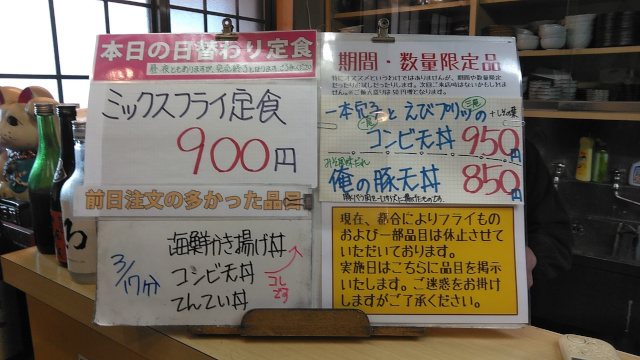 本日の日替わり定食
昼夜ともあります
ミックスフライ定食
900円
前日注文の多かった品
3/17分
海鮮かき揚げ丼
コンビ天丼
てんてい丼
コレです
期間・数量限定品
特にオススメというわけではありませんが、期間や数量限定
一本穴子とえびプリッの
+しその葉
コンビ天丼 950円
俺の豚天丼 850円
現在、都合によりフライもの
および一部品目は休止させて
いただいております。
実施日はこちらに品目を掲示
いたします。ご迷惑をお掛け
しますがご了承ください。